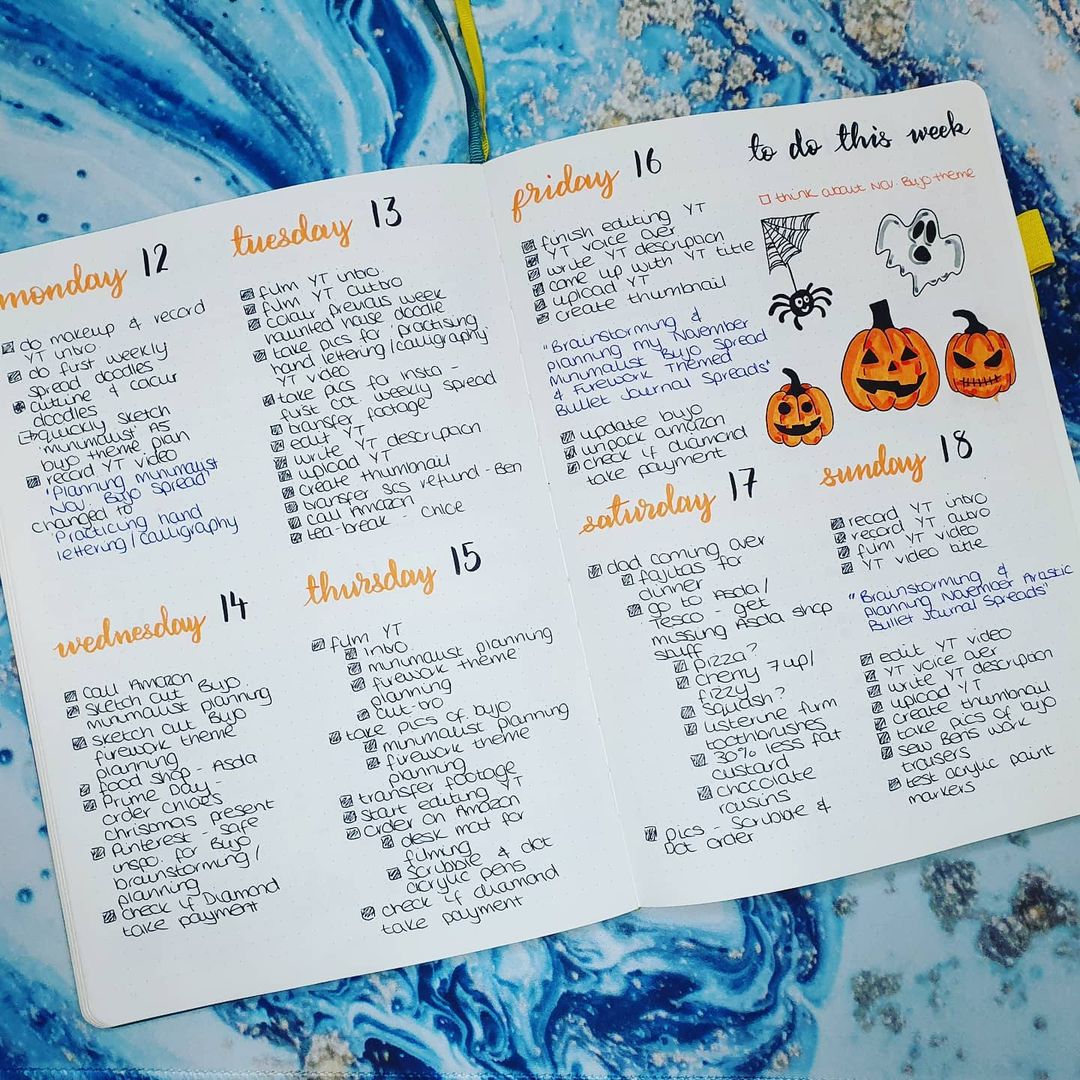 monday 12
do makeup & record
YT intro
do first weekly
spread doodles
outline & colour
doodles
quickly sketch
minimalist A5
bujo theme plan
record YT video
"Planning minimalist
Nov. Bujo Spread"
changed to
"Practicing hand
lettering/calligraphy
tuesday 13
film YT intro
film YT outro
colour previous week
haunted house doodle
take pics for/practising
hand lettering/calligraphy
YT video
take pics for insta -
first oct weekly spread
transfer footage
edit YT
write YT description
upload YT
create thumbnail
transfer SCS refund - Ben
call Amazon
tea-break - chloe
wednesday 14
call Amazon
sketch out Bujo
minimalist planning
sketch out Bujo
firework theme
planning
food shop - Asda
Prime Day
order chloes
chrismas present
Pinterest - safe
inspo. for Bujo
brainstorming/
planning
check if Diamond
take payment
thursday 15
film YT
intro
minimalist planning
firework theme
planning
out-tro
take pics of bujo
minimalist planning
firework theme
planning
transfer footage
start editing YT
order on Amazon
desk mat for
filming
Scribble & dot
acrylic pens
check if diamond
take payment
friday 16
finish editing YT
YT voice over
write YT description
come up with YT title
upload YT
create thumbnail
"Brainstorming &
planning my November
Minimalist Bujo Spread
& Firework Themed
Bullet Journal Spreads"
update bujo
unpack amazon
check if diamond
take payment
to do this week
think about Nov. Bujo theme
saturday 17
dad coming over
fajitas for
dinner
go to Asda/
Tesco - get
missing Asda shop
stuff
pizza?
cherry 7up/
fizzy
squash?
listerine firm
toothbrushes
30% less fat
custard
chocolate
raisins
pics - Scribble &
Dot order
sunday 18
record YT intro
record YT outro
film YT video
YT video title
"Brainstorming &
planning November Artistic
Bullet Journal Spreads"
edit YT video
YT voice over
write YT description
upload YT
create thumbnail
take pics of bujo
sew Bens work
trousers
test acrylic paint
markers